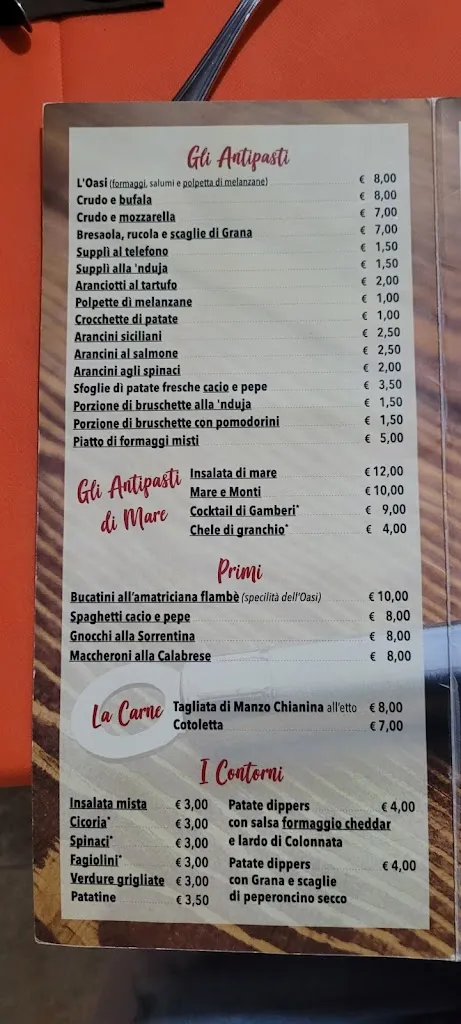 Gli Antipasti
L'Oasi (formaggi, salumi e polpetta di melanzane) € 8,00
Crudo e bufala € 8,00
Crudo e mozzarella € 7,00
Bresaola, rucola e scaglie di Grana € 7,00
Supplì al telefono € 1,50
Supplì alla 'nduja € 1,50
Aranciotti al tartufo € 2,00
Polpette dì melanzane € 1,00
Crocchette di patate € 1,00
Arancini siciliani € 2,50
Arancini al salmone € 2,50
Arancini agli spinaci € 2,00
Sfoglie dì patate fresche cacio e pepe € 3,50
Porzione di bruschette alla 'nduja € 1,50
Porzione di bruschette con pomodorini € 1,50
Piatto di formaggi misti € 5,00
Gli Antipasti
di Mare
Insalata di mare € 12,00
Mare e Monti € 10,00
Cocktail di Gamberi* € 9,00
Chele di granchio* € 4,00
Primi
Bucatini all'amatriciana flambè (specilità dell'Oasi) € 10,00
Spaghetti cacio e pepe € 8,00
Gnocchi alla Sorrentina € 8,00
Maccheroni alla Calabrese € 8,00
La Carne
Tagliata di Manzo Chianina all'etto € 8,00
Cotoletta € 7,00
I Contorni
Insalata mista € 3,00
Cicoria* € 3,00
Spinaci* € 3,00
Fagiolini* € 3,00
Verdure grigliate € 3,00
Patatine € 3,50
Patate dippers € 4,00
con salsa formaggio cheddar
e lardo di Colonnata
Patate dippers € 4,00
con Grana e scaglie
di peperoncino secco